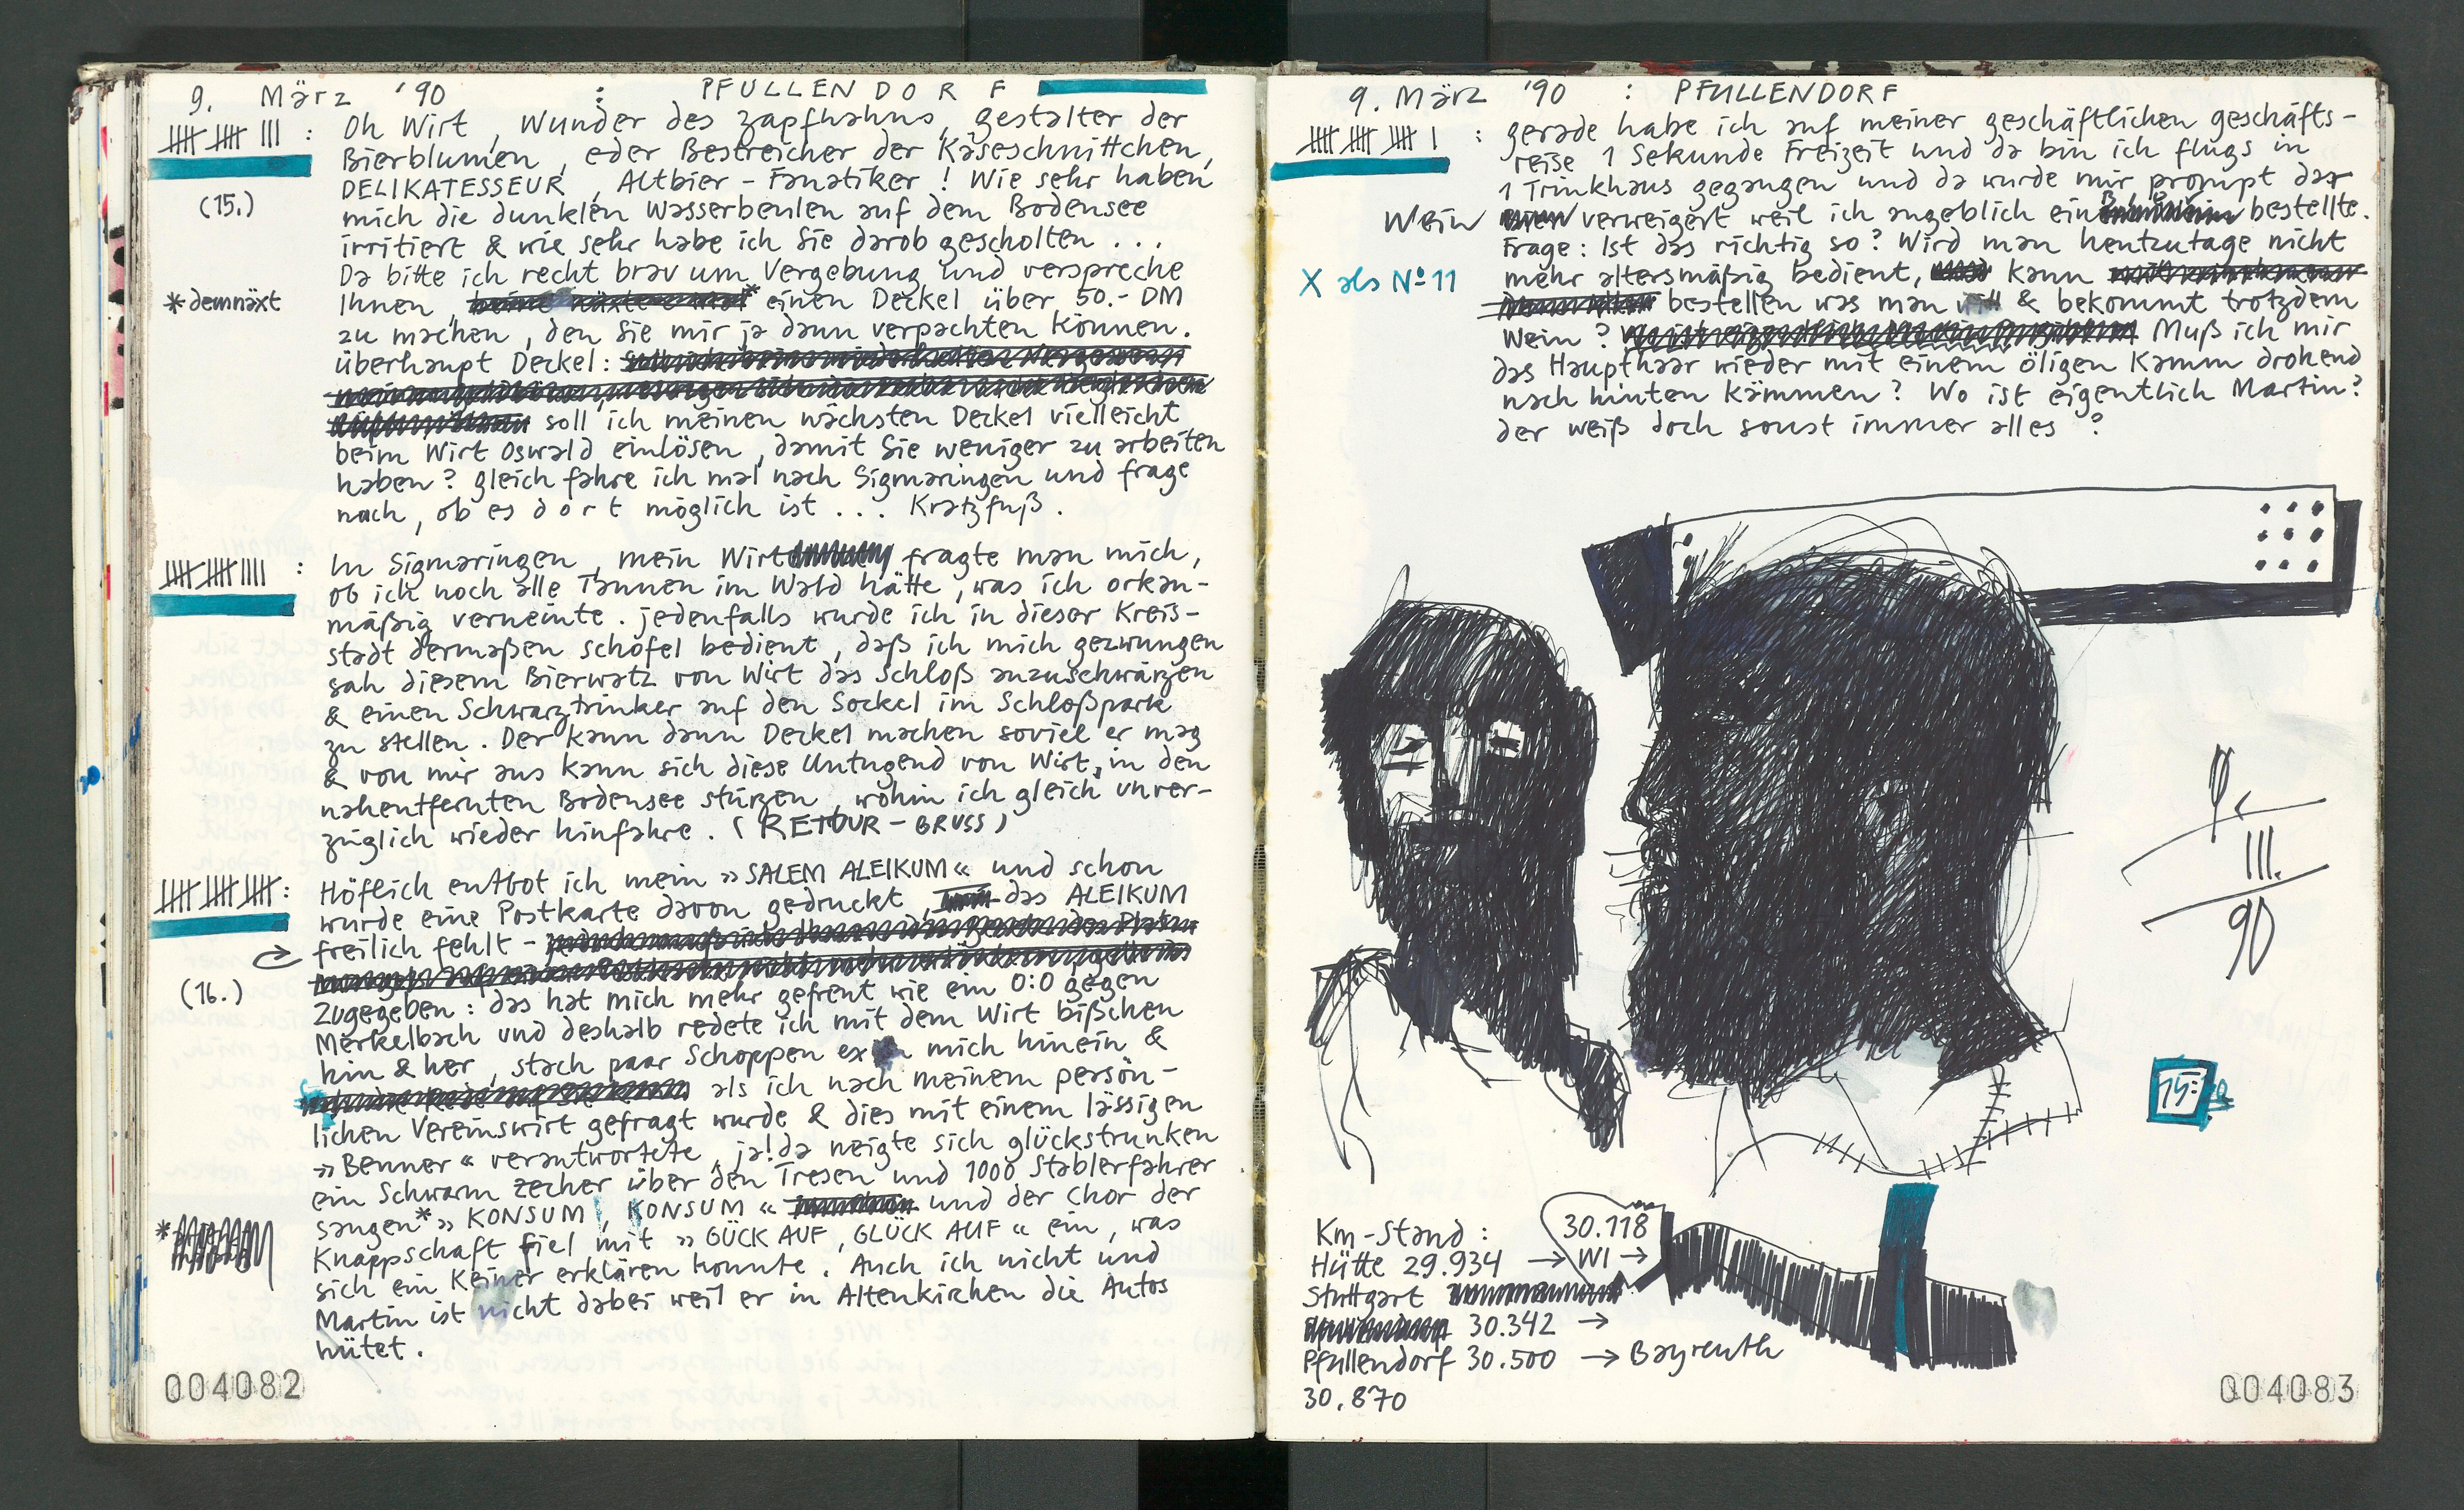 9. März '90 : PFULLENDORF
𝍸 𝍸 III : Oh Wirt, Wunder des Zapfhahns, gestalter der
Bierblumen, eder Bestreicher der Käseschnittchen,
DELIKATESSEUR, Altbier-Fanatiker! Wie sehr haben
(15.) mich die dunklen Wasserbeulen auf dem Bodensee
irritiert & wie sehr habe ich Sie darob gescholten ...
Da bitte ich recht brav um Vergebung und verspreche
*demnäxt Ihnen, * einen Deckel über 50.- DM
zu machen, den Sie mir ja dann verpachten können.
überhaupt Deckel:
soll ich meinen nächsten Deckel vielleicht
beim Wirt Oswald einlösen, damit Sie weniger zu arbeiten
haben? gleich fahre ich mal nach Sigmaringen und frage
nach, ob es dort möglich ist ... Kratzfuß.
𝍸 𝍸 IIII : In Sigmaringen, mein Wirt fragte man mich,
ob ich noch alle Tannen im Wald hätte, was ich orkan-
mäßig verneinte. jedenfalls wurde ich in dieser Kreis-
stadt dermaßen schofel bedient, daß ich mich gezwungen
sah diesem Bierwatz von Wirt das Schloß anzuschwärzen
& einen Schwarztrinker auf den Sockel im Schloßpark
zu stellen. Der kann dann Deckel machen soviel er mag
& von mir aus kann sich diese Untugend von Wirt, in den
nahentfernten Bodensee stürzen, wohin ich gleich unver-
züglich wieder hinfahre. (RETOUR-GRUSS)
𝍸 𝍸 𝍸 : Höflich entbot ich mein »SALEM ALEIKUM« und schon
wurde eine Postkarte davon gedruckt, das ALEIKUM
freilich fehlt -
(16.) Zugegeben: das hat mich mehr gefreut wie ein 0:0 gegen
Merkelbach und deshalb redete ich mit dem Wirt bißchen
hin & her, stach paar Schoppen ex mich hinein &
als ich nach meinem persön-
lichen Vereinswirt gefragt wurde & dies mit einem lässigen
»Benner« verantwortete, ja! da neigte sich glückstrunken
ein Schwarm Zecher über den Tresen und 1000 Stablerfahrer
sangen* »KONSUM, KONSUM« und der Chor der
Knappschaft fiel mit »GÜCK AUF, GLÜCK AUF« ein, was
sich ein Keiner erklären konnte. Auch ich nicht und
Martin ist nicht dabei weil er in Altenkirchen die Autos
hütet.
004082
9. März '90 : PFULLENDORF
𝍸 𝍸 𝍸 I : gerade habe ich auf meiner geschäftlichen geschäfts-
reise 1 Sekunde Freizeit und da bin ich flugs in
1 Trinkhaus gegangen und da wurde mir prompt der
Wein verweigert weil ich angeblich ein bestellte.
Frage: Ist das richtig so? Wird man heutzutage nicht
X als No 11 mehr altersmäßig bedient, kann
bestellen was man will & bekommt trotzdem
Wein? Muß ich mir
das Haupthaar wieder mit einem öligen Kamm drohend
nach hinten kämmen? Wo ist eigentlich Martin?
der weiß doch sonst immer alles?
9.
III.
90
15:
Km-Stand: 30.118
Hütte 29.934 → WI →
Stuttgart
30.342 →
Pfullendorf 30.500 → Bayreuth
30.870
004083